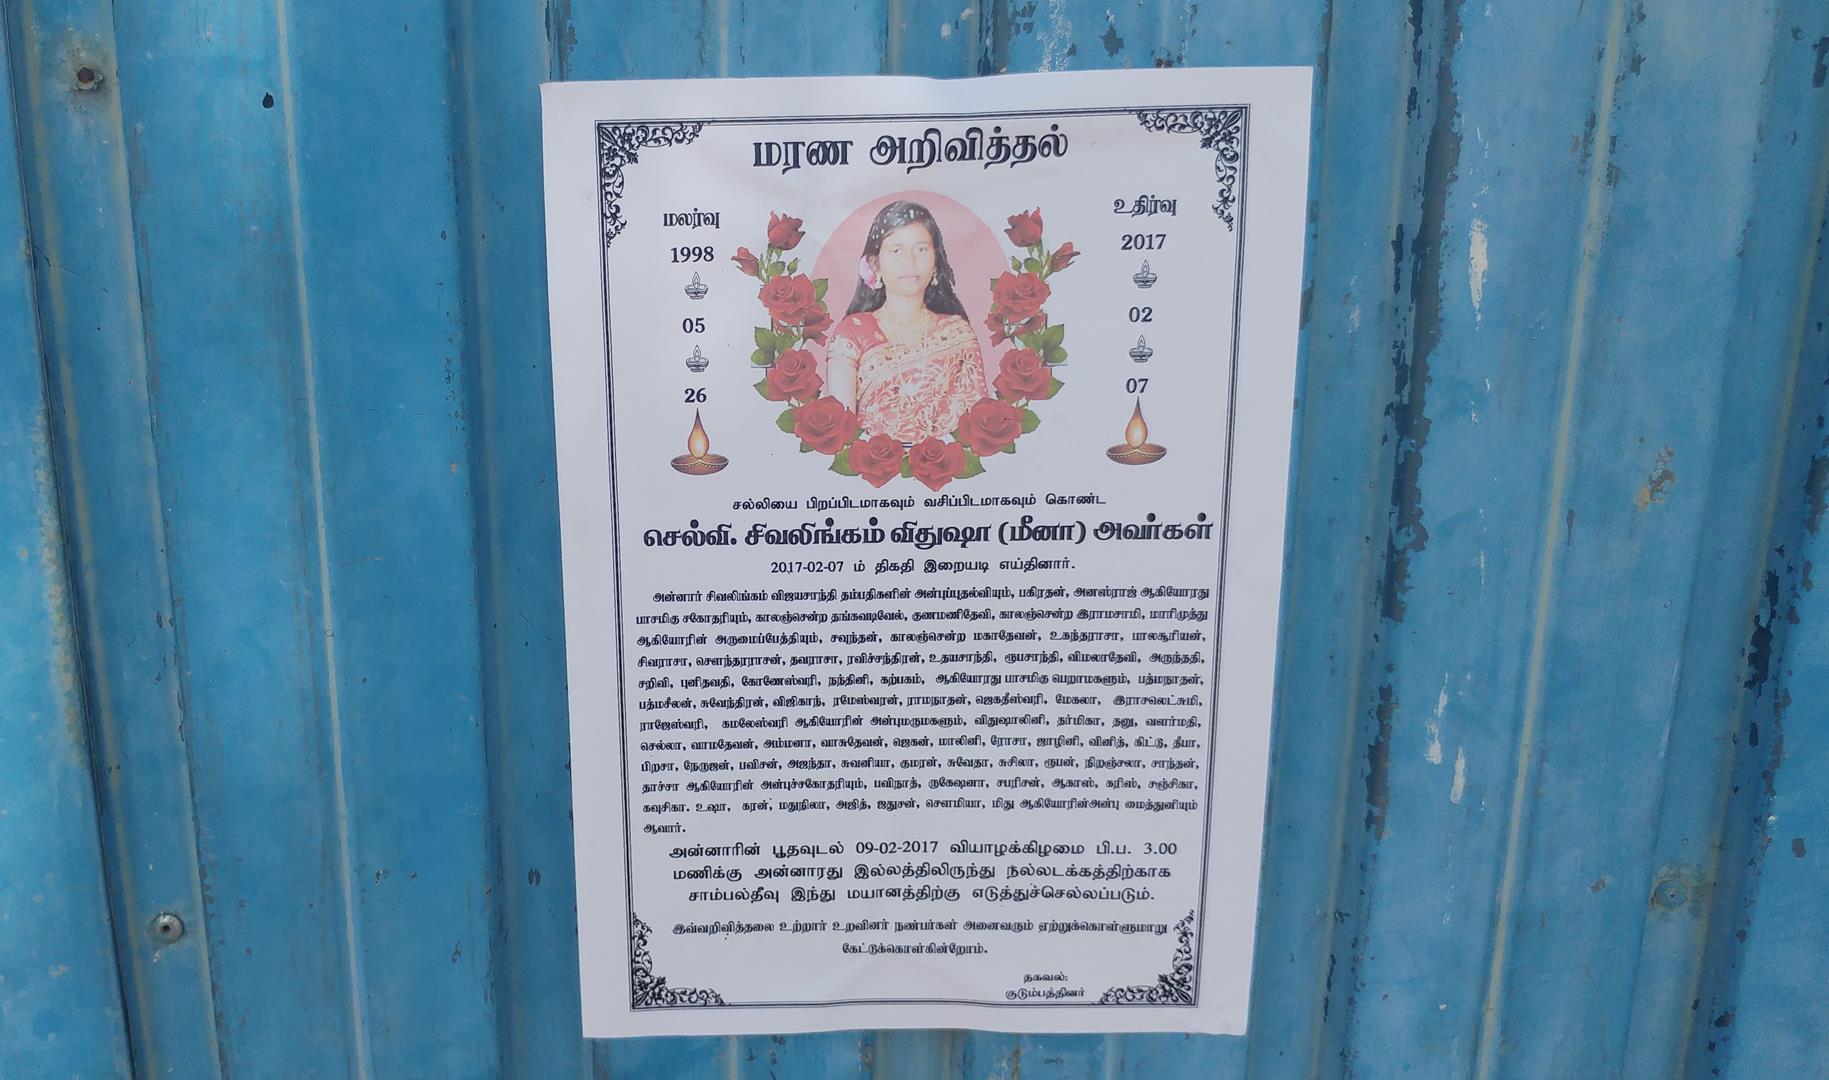 மரண அறிவித்தல்
மலர்வு
1998
05
26
உதிர்வு
2017
02
07
சல்லியை பிறப்பிடமாகவும் வசிப்பிடமாகவும் கொண்ட
செல்வி. சிவலிங்கம் விதுஷா (மீனா) அவர்கள்
2017-02-07 ம் திகதி இறையடி எய்தினார்.
அன்னார் சிவலிங்கம் விஜயசாந்தி தம்பதிகளின் அன்புப்புதல்வியும், பகிரதன், அனஸ்ராஜ் ஆகியோரது
பாசமிகு சகோதரியும், காலஞ்சென்ற தங்கவடிவேல், குணமணிதேவி, காலஞ்சென்ற இராமசாமி, மாரிமுத்து
ஆகியோரின் அருமைப்பேத்தியும், சவுந்தன், காலஞ்சென்ற மகாதேவன், உகந்தராசா, பாலசூரியன்,
சிவராசா, சௌந்தரராசன், தவராசா, ரவிச்சந்திரன், உதயசாந்தி, ரூபசாந்தி, விமலாதேவி, அருந்ததி,
சறிவி, புனிதவதி, கோணேஸ்வரி, நந்தினி, கற்பகம், ஆகியோரது பாசமிகு பெறாமகளும், பத்மநாதன்,
பத்மசீலன், சுவேந்திரன், விஜிகாந், ரமேஸ்வரன், ராமநாதன், ஜெகதீஸ்வரி, மேகலா, இராசலெட்சுமி,
ராஜேஸ்வரி, கமலேஸ்வரி ஆகியோரின் அன்புமருமகளும், விதுஷாலினி, தர்மிகா, தனு, வளர்மதி,
செல்லா, வாமதேவன், அம்மனா, வாசுதேவன், ஜெகன், மாலினி, ரோசா, ஜாழினி, வினித், கிட்டு, தீபா,
பிறசா, நேருஜன், பவிசன், அஜந்தா, சுவனியா, குமரன், சுவேதா, சுசிலா, ரூபன், நிறஞ்சலா, சாந்தன்,
தாச்சா ஆகியோரின் அன்புச்சகோதரியும், பவிநாத், ருகேஷனா, சபரிசன், ஆகாஸ், கரிஸ், சஞ்சிகா,
கவுசிகா. உஷா, கரன், மதுநிலா, அஜித், ஜதுசன், சௌமியா, மிது ஆகியோரின்அன்பு மைத்துனியும்
ஆவார்.
அன்னாரின் பூதவுடல் 09-02-2017 வியாழக்கிழமை பி.ப. 3.00
மணிக்கு அன்னாரது இல்லத்திலிருந்து நல்லடக்கத்திற்காக
சாம்பல்தீவு இந்து மயானத்திற்கு எடுத்துச்செல்லப்படும்.
இவ்வறிவித்தலை உற்றார் உறவினர் நண்பர்கள் அனைவரும் ஏற்றுக்கொள்ளுமாறு
கேட்டுக்கொள்கின்றோம்.
தகவல்:
குடும்பத்தினர்